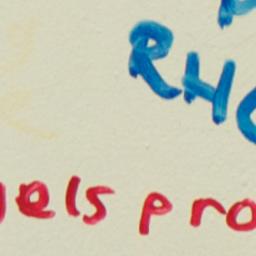 RHO
gels pro